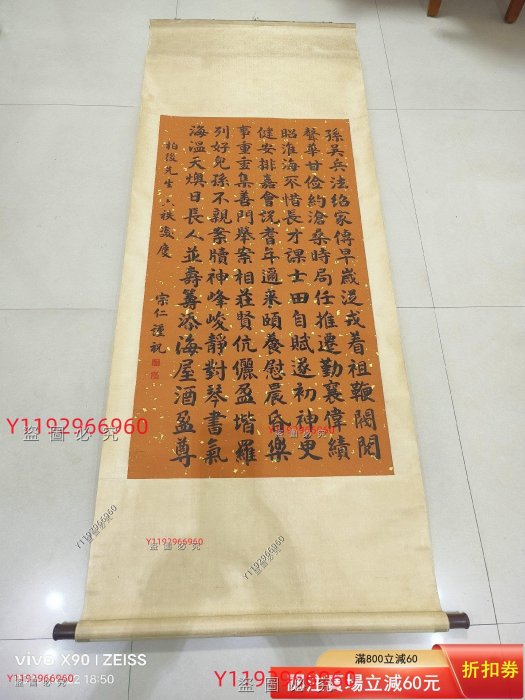 孫吳兵法紹家傳早歲從戎着祖鞭閥閱
聲華甘儉約滄桑時局任推遷勤襄偉績
昭淮海不惜長才課士田自賦遂初神更
健安排嘉會説耆年適萊頤養慰晨昏樂
事重重集善門舉案相莊賢伉儷盈堦羅
列好兒孫不親案牘神峰峻靜對琴書氣
海溫天燠日長人並壽籌添海屋酒盈尊
先生六秩慶
宗仁謹祝
Y1192966960
盜圖必究
Y1192966960
盜圖必究
Y1192966960
盜圖必究
Y1192966960
盜圖必究
vivo X90 | ZEISS
Y1192966960
18:50
盜圖必究
Y1192966960
滿800立減60
折扣券
立減60元